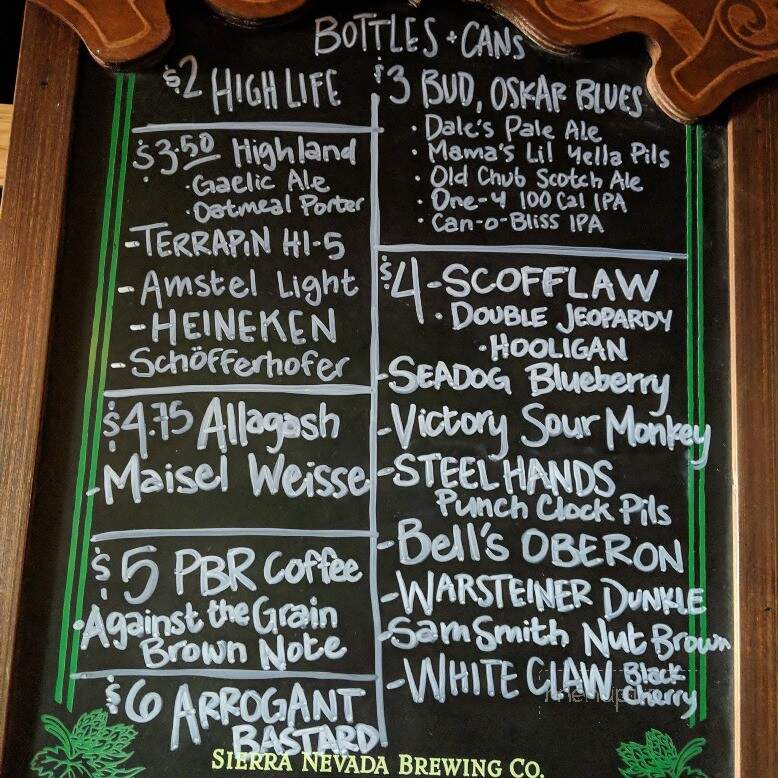 BOTTLES + CANS
$2 HIGH LIFE
$3.50 Highland
· Gaelic Ale
· Oatmeal Porter
- TERRAPIN HI-5
- Amstel Light
- HEINEKEN
- Schöfferhofer
$4.75 Allagash
- Maisel Weisse
$5 PBR Coffee
· Against the Grain
Brown Note
$6 ARROGANT
BASTARD
$3 BUD, OSKAR BLUES
· Dale's Pale Ale
· Mama's Lil Yella Pils
· Old Chub Scotch Ale
· One-y 100 Cal IPA
· Can-o-Bliss IPA
$4 - SCOFFLAW
· DOUBLE JEOPARDY
· HOOLIGAN
- SEADOG Blueberry
- Victory Sour Monkey
- STEEL HANDS
Punch Clock Pils
- Bell's OBERON
- WARSTEINER DUNKLE
- Sam Smith Nut Brown
- WHITE CLAW Black
Cherry
SIERRA NEVADA BREWING CO.